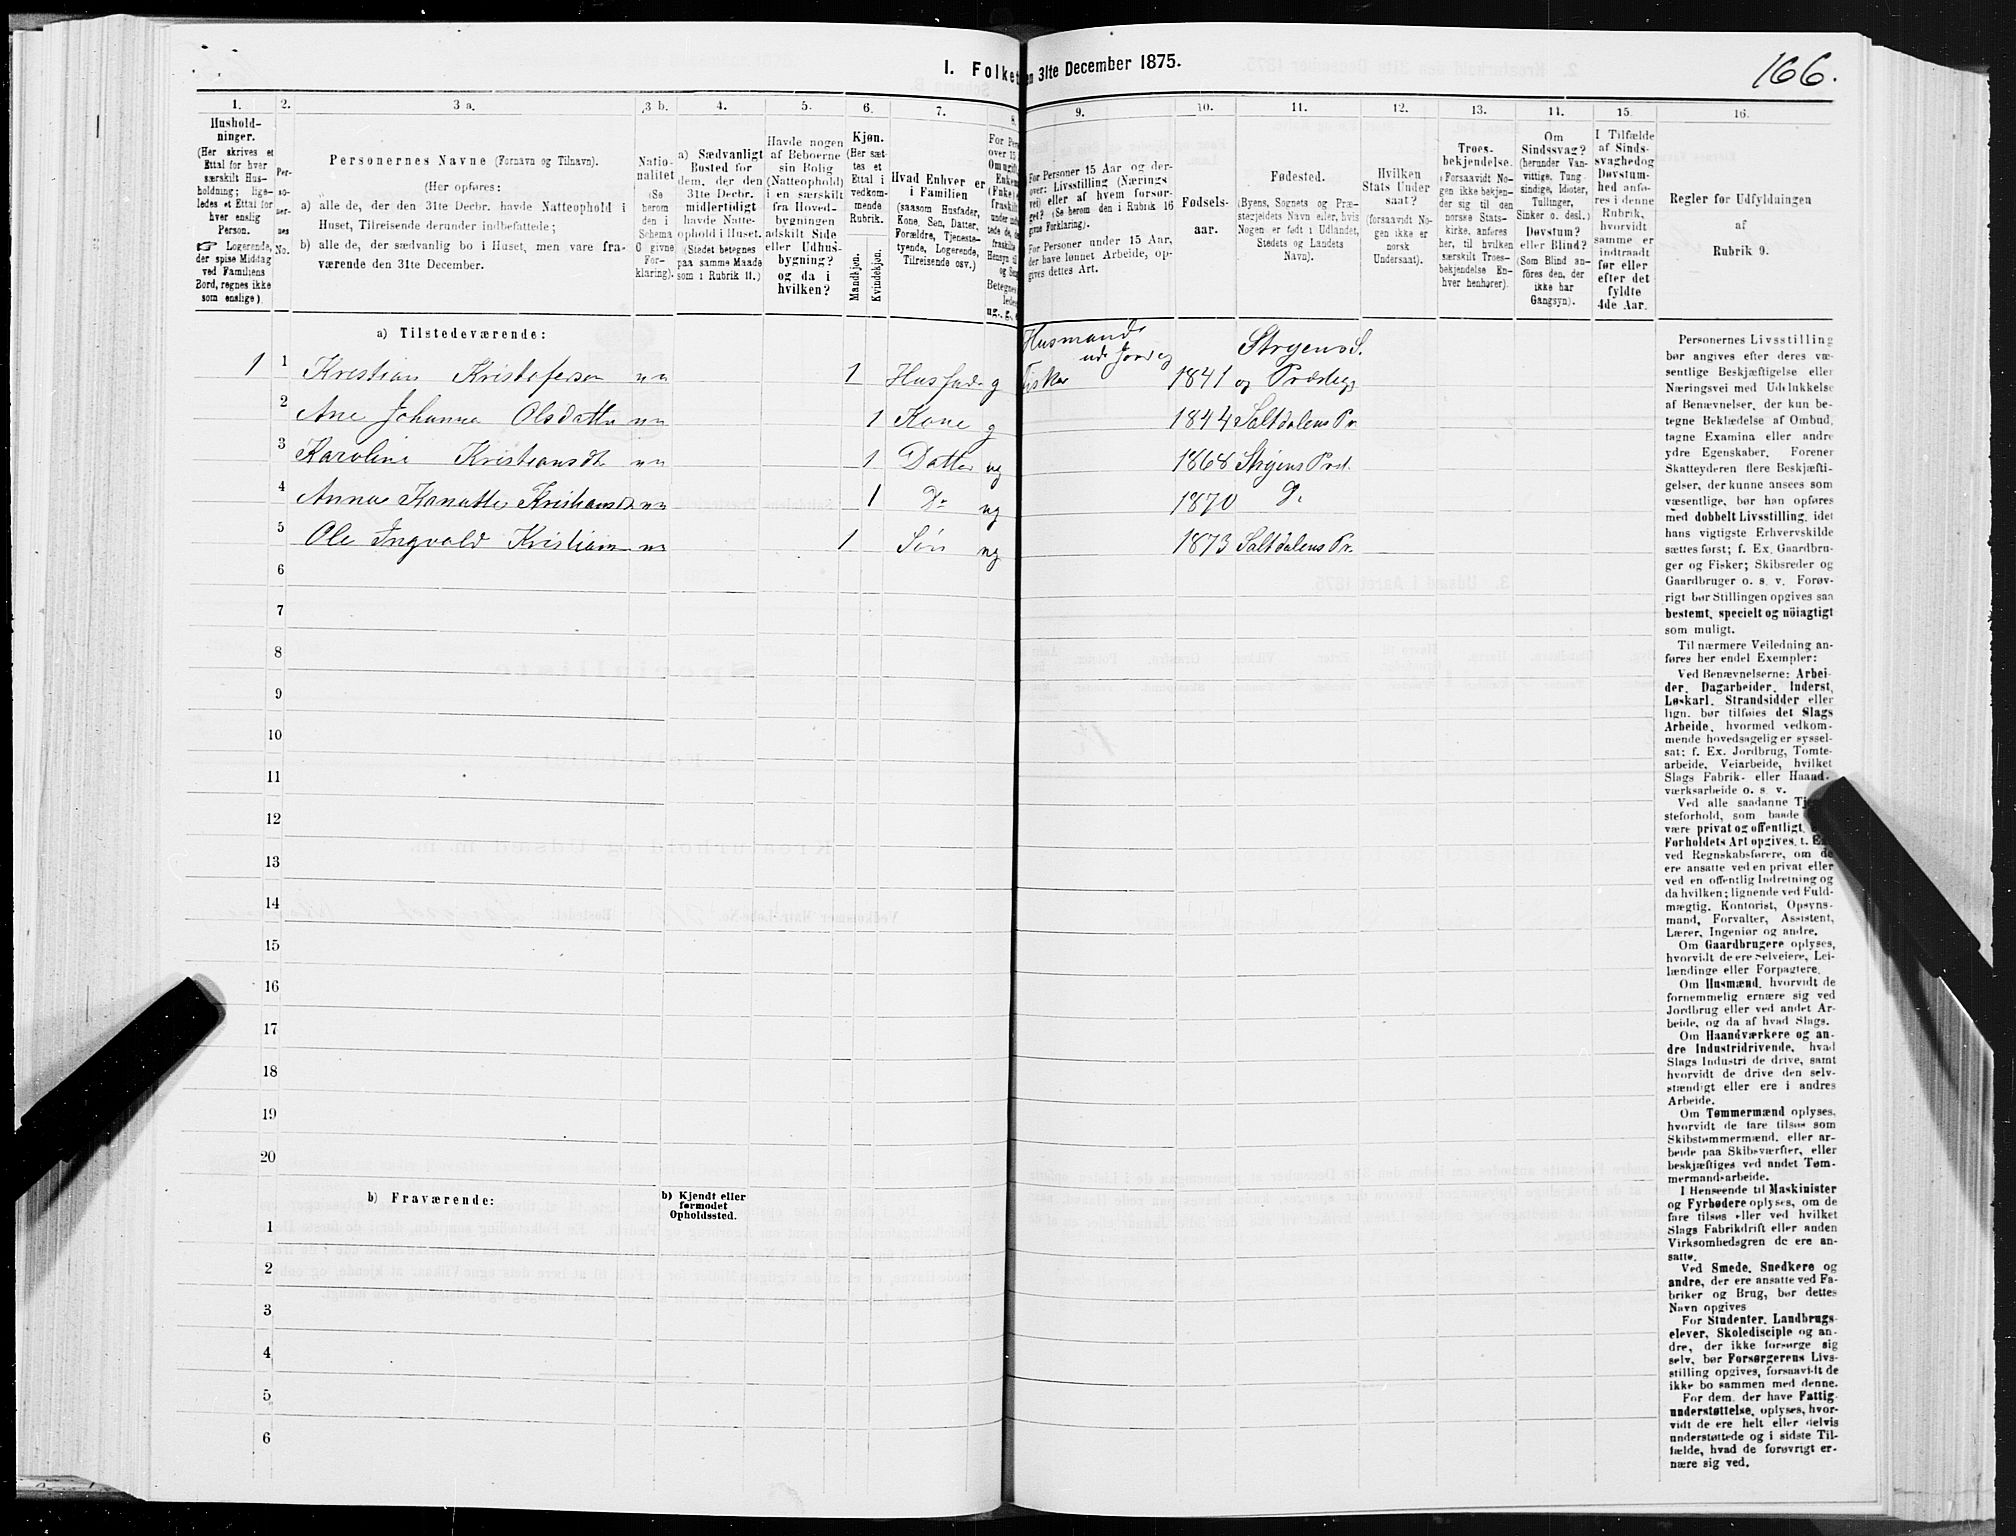 166.
I. Folket
en 31te December 1875.
1. 2. 3 a. 3 b. 4. 5. 6. 7. 8. 9. 10. 11. 12. 13. 14. 15. 16.
Hushold-
ninger.
(Her skrives et
Ettal for hver
særskilt Hus-
holdning; lige-
ledes et Ettal for
hver enslig
Person.
Logerende,
der spise Middag
ved Familiens
Bord, regnes ikke
som enslige).
Per-
so-
ner-
nes
No.
Personernes Navne (Fornavn og Tilnavn).
(Her opføres:
a) alle de, der den 31te Decbr. havde Natteophold i
Huset, Tilreisende derunder indbefattede;
b) alle de, der sædvanlig bo i Huset, men vare fra-
værende den 31te December.
Natio-
nalitet
(Se
herom
den i
Schema
O givne
For-
klaring).
a) Sædvanligt
Bosted for
dem, der den
31te Decbr.
midlertidigt
havde Natte-
ophold i Huset.
(Stedet betegnes
paa samme Maade
som i Rubrik 11.)
Havde nogen
af Beboerne
sin Bolig
(Natteophold)
i en særskilt
fra Hoved-
bygningen
adskilt Side
eller Udhus-
bygning?
og da i
hvilken?
Kjøn.
(Her sæt-
tes et
Ettal i
vedkom-
mende
Rubrik.
Mandkjøn.
Kvindekjøn.
Hvad Enhver er
i Familien
(saasom Husfader,
Kone, Søn, Datter,
Forældre, Tjeneste-
tyende, Logerende,
Tilreisende osv.)
For Personer 15 Aar og der-
over: Livsstilling (Nærings
vei) eller af hvem forsør-
get? (Se herom den i Rubrik 16
givne Forklaring).
For Personer under 15 Aar,
der have lønnet Arbeide, op-
gives dettes Art.
Fødsels-
aar.
Fødested.
(Byens, Sognets og Præ-
stegjeldets Navn eller, hvis
Nogen er født i Udlandet,
Stedets og Landets
Navn).
Hvilken
Stats Under
saat?
(forsaavidt No-
gen ikke er
norsk
Undersaat).
Troes-
bekjendelse.
(Forsaavidt No-
gen ikke bekjen-
der sig til den
norske Stats-
kirke, anføres
her, til hvilken
særskilt Troes-
bekjendelse En-
hver henhører).
Om
Sindssvag?
(herunder Van-
vittige, Tung-
sindige, Idioter,
Tullinger,
Sinker o. desl.)
Døvstum?
eller Blind?
(Som Blind an-
føres den, der
ikke har
Gangsyn).
I Tilfælde
af Sinds-
svaghed og
Døvstum-
hed anfø-
res i denne
Rubrik,
hvorvidt
samme er
indtraadt
før eller
efter det
fyldte
4de Aar.
Regler for Udfyldningen
af
Rubrik 9.
a) Tilstedeværende:
Husmand
ud. Jord og
Stryens S.
1 1 Kristian Kristofersen nn 1 Husfader g Fisker 1841 og Præstegj.
2 Ane Johanna Olsdatter nn 1 Kone g 1844 Saltdalens Pr.
3 Karoline Kristiansdt nn 1 Datter ug 1868 Stryens Præst.
4 Anna Kristiansdt nn 1 Do ug 1870 Do
5 Ole Ingvald Kristian nn 1 Søn ug 1873 Saltdalens Pr.
6
7
8
9
10
11
12
13
14
15
16
17
18
19
20
b) Fraværende:
b) Kjendt eller
formodet
Opholdssted.
1
2
3
4
5
6
Personernes Livsstilling
bør angives efter deres væ-
sentlige Beskjæftigelse eller
Næringsvei med Udelukkelse
af Benævnelser, der kun be-
tegne Beklædelse af Ombud,
tagne Examina eller andre
ydre Egenskaber. Forener
Skatteyderen flere Beskjæfti-
gelser, der kunne ansees som
væsentlige, bør han opføres
med dobbelt Livsstilling, idet
hans vigtigste Erhvervskilde
sættes først; f. Ex. Gaardbru-
ger og Fisker; Skibsreder og
Gaardbruger o. s. v. Forøv-
rigt bør Stillingen opgives saa
bestemt, specielt og nöiagtigt
som muligt.
Til nærmere Veiledning an-
føres her endel Exempler:
Ved Benævnelserne: Arbei-
der, Dagarbeider, Inderst,
Løskarl, Strandsidder eller
lign. bør tilføies det Slags
Arbeide, hvormed vedkom-
mende hovedsagelig er syssel-
sat; f. Ex. Jordbrug, Tomte-
arbeide, Veiarbeide, hvilket
Slags Fabrik- eller Haand-
værksarbeide o. s. v.
Ved alle saadanne
steforhold, som baade
være privat og offentligt,
Forholdets Art opgives, t. Ex.
ved Regnskabsførere, om de
ere ansatte ved en privat eller
ved en offentlig Indretning og
da hvilken; lignende ved Fuld-
mægtig, Kontorist, Opsyns-
mand, Forvalter, Assistent,
Lærer, Ingeniør og andre.
Om Gaardbrugere oplyses,
hvorvidt de ere Selveiere, Lei-
lændinge eller Forpagtere.
Om Husmænd, hvorvidt de
fornemmelig ernære sig ved
Jordbrug eller ved andet Ar-
beide, og da af hvad Slags.
Om Haandværkere og an-
dre Industridrivende, hvad
Slags Industri de drive, samt
hvorvidt de drive den selv-
stændigt eller ere i andres
Arbeide.
Om Tømmermænd oplyses,
hvorvidt de fare tilsøs som
Skibstømmermænd, eller ar-
beide paa Skibsværfter, eller
beskjæftiges ved andet Tøm-
mermandsarbeide.
I Henseende til Maskinister
og Fyrbødere oplyses, om de
fare tilsøs eller ved hvilket
Slags Fabrikdrift eller anden
Virksomhedsgren de ere an-
satte.
Ved Smede, Snedkere og
andre, der ere ansatte ved Fa-
briker og Brug, bør dettes
Navn opgives
For Studenter, Landbrugs-
elever, Skoledisciple og an-
dre, der ikke forsørge sig
selv, bør Forsørgerens Livs-
stilling opgives, forsaavidt de
ikke bo sammen med denne.
For dem, der have Fattig-
understøttelse, oplyses, hvor-
vidt de ere helt eller delvis
understøttede og i sidste Til-
fælde, hvad de forøvrigt er-
nære sig ved.